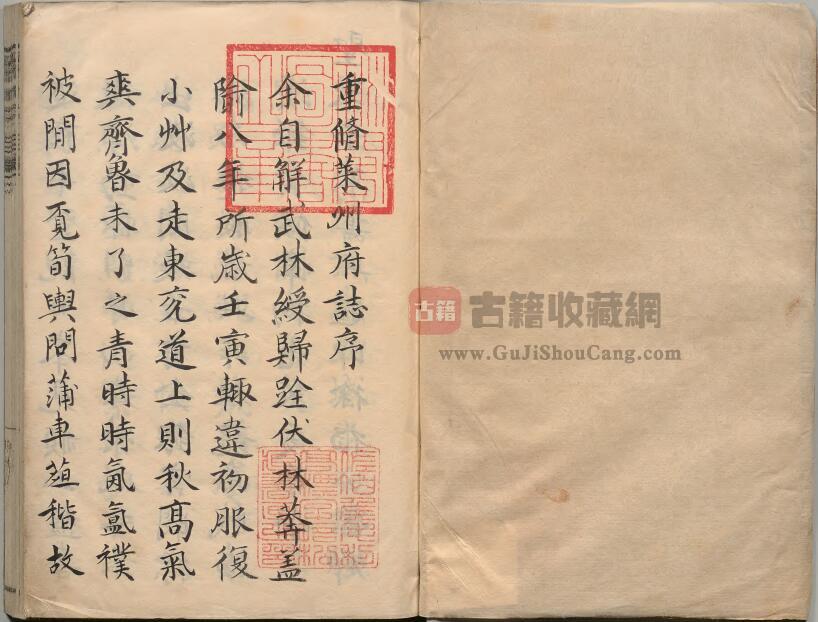 重脩萊州府誌序
余自解武林綬歸跧伏林莽蓋
隃八年所歲壬寅輙違初服復
小艸及走東兖道上則秋高氣
爽齊魯未了之青時時氤氳襆
被閒因覔筍輿問蒲車葅稭故
古籍
古籍收藏網
www.GuJiShouCang.com